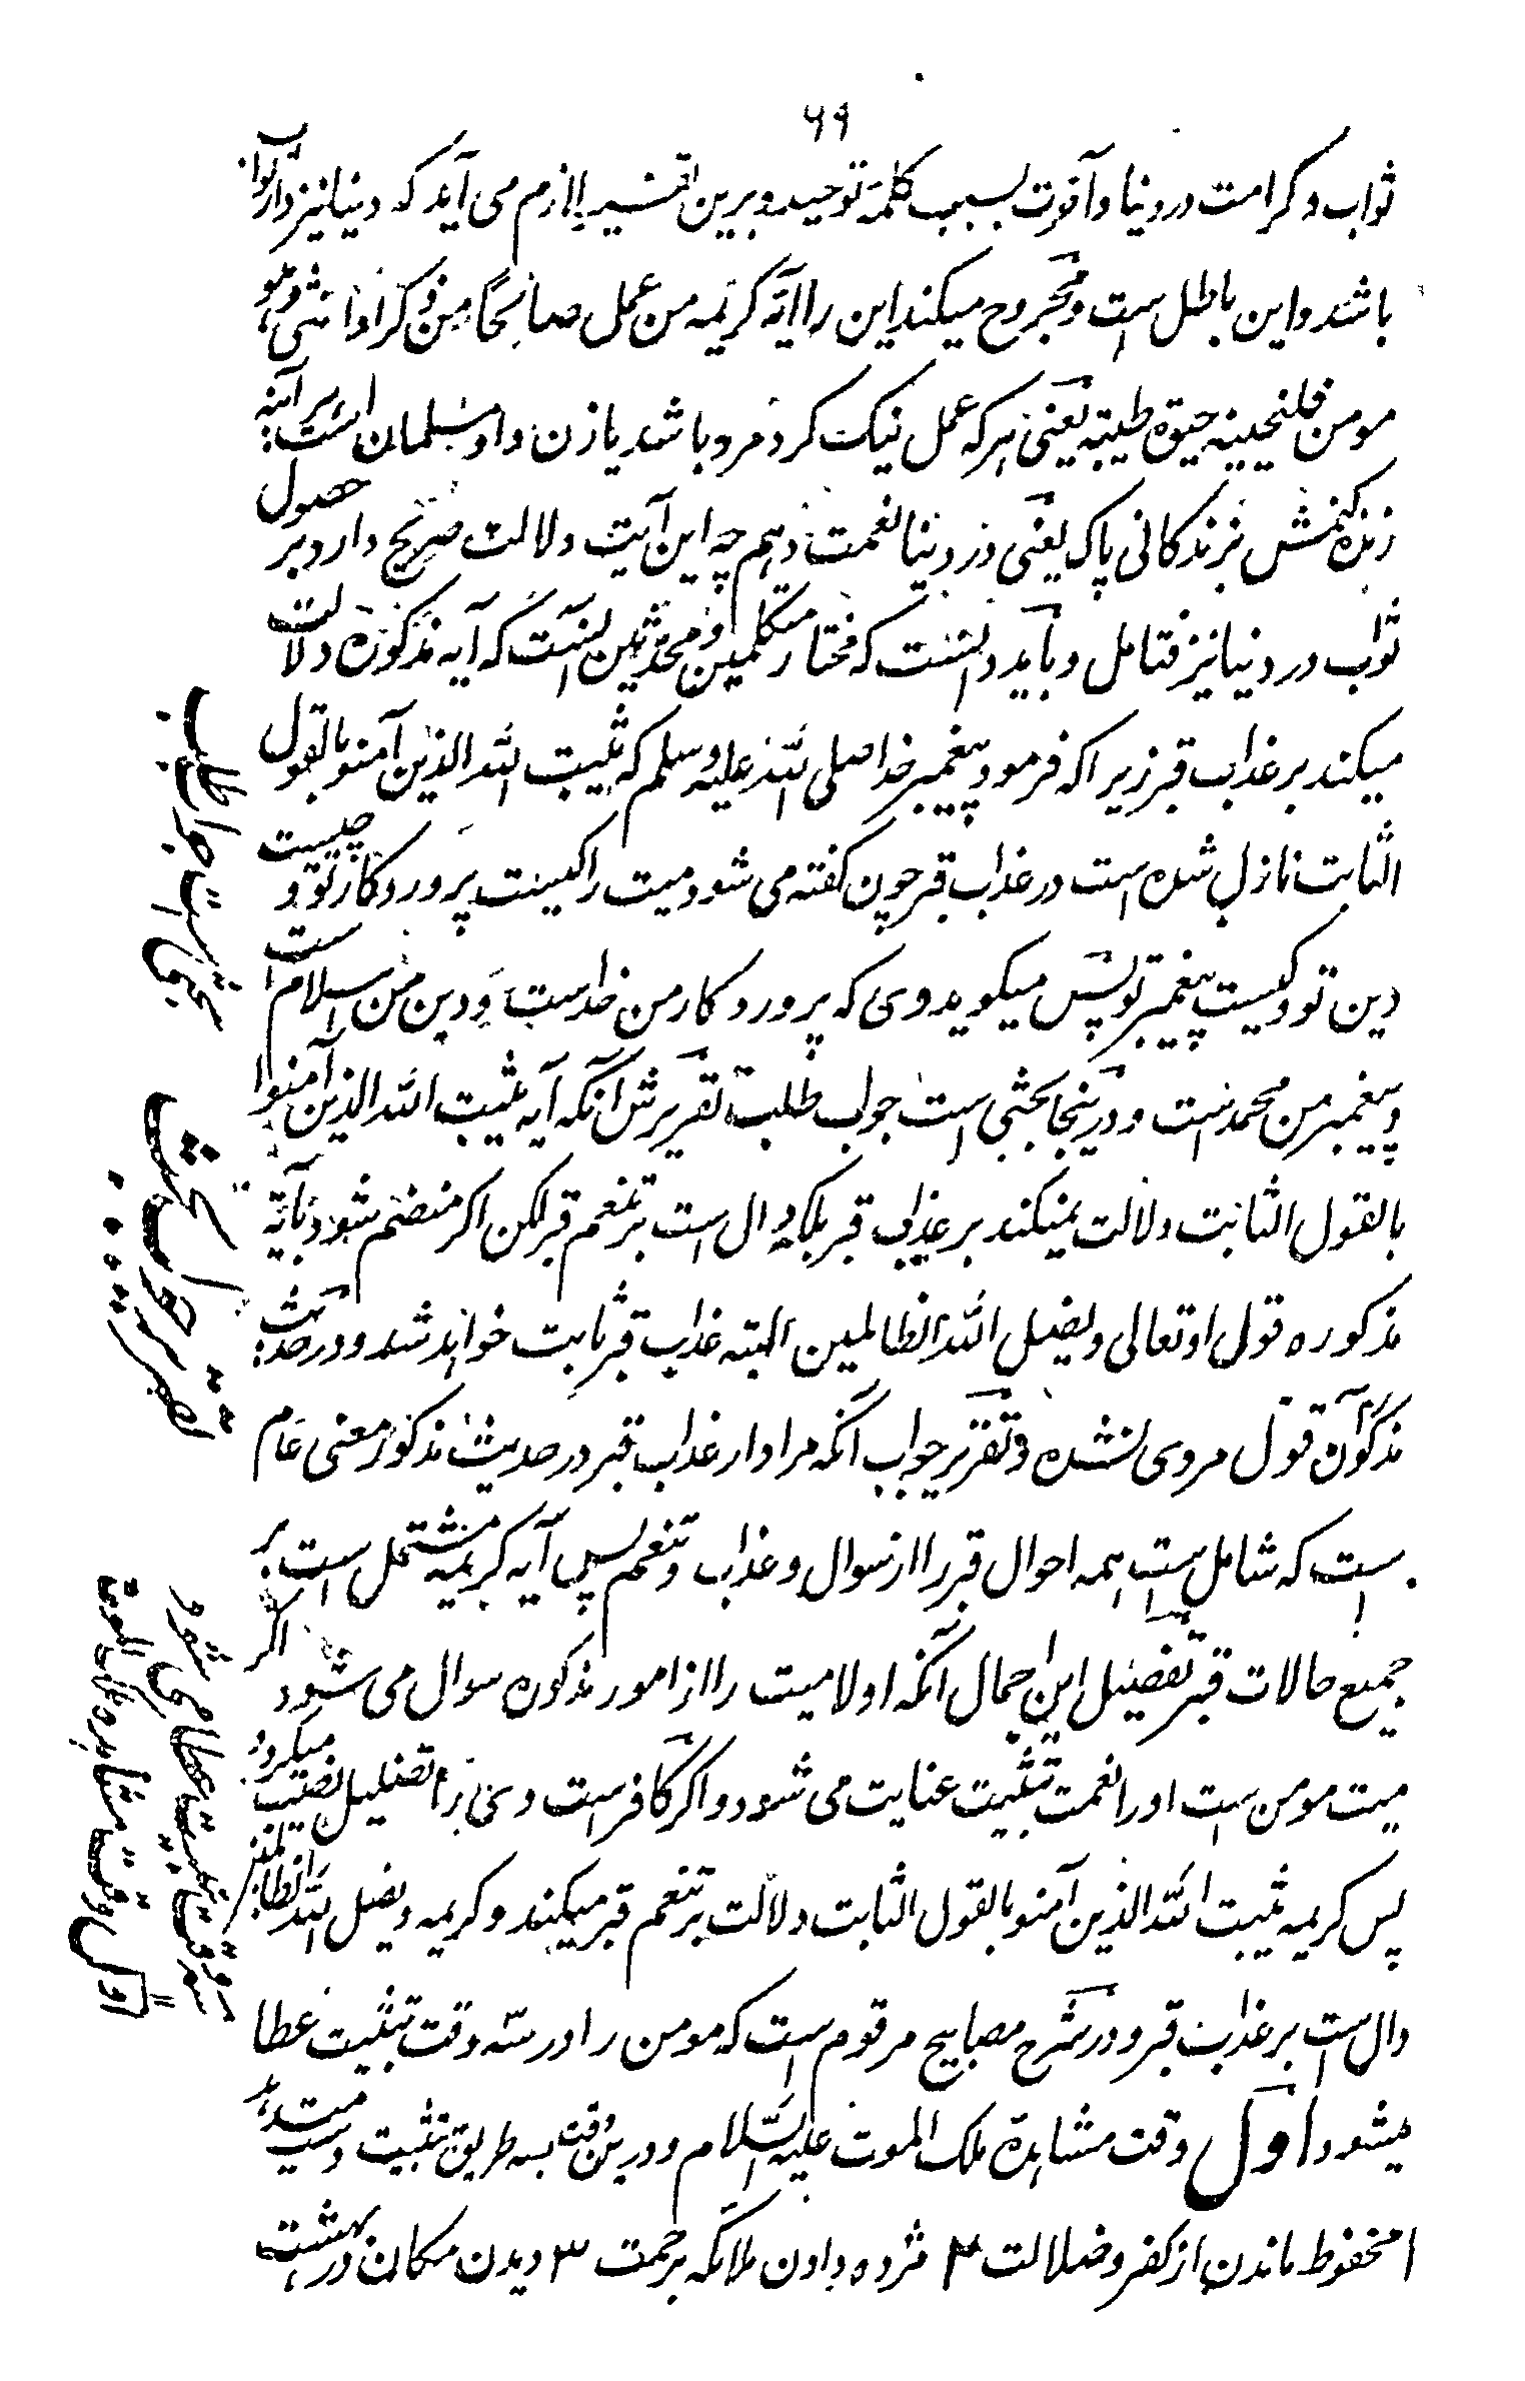 ۶۹
ثواب و کرامت در دنیا و آخرت بسبب کلمهٔ توحید و برین تفسیر لازم می آید که دنیا نیز دار ثواب
باشد و این باطل است و مجروح میکند این را آیهٔ کریمه من عمل صالحا من ذکر او انثی و هو
مومن فلنحیینه حیوة طیبة یعنی هر که عمل نیک کرد مرد باشد یا زن و او مسلمان است هر آینه
زنده کنمش بزندگانی پاک یعنی در دنیا نعمت دهم چه این آیت دلالت صریح دارد بر حصول
ثواب در دنیا نیز فتامل و باید دانست که مختار متکلمین و محدثین اینست که آیه مذکوره دلالت
میکند بر عذاب قبر زیرا که فرمود پیغمبر خدا صلی الله علیه وسلم که یثبت الله الذین آمنو بالقول
الثابت نازل شده است در عذاب قبر چون گفته می شود میت را کیست پروردگار تو و چیست
دین تو و کیست پیغمبر تو پس میگوید وی که پروردگار من خداست و دین من اسلام است
و پیغمبر من محمد است و درینجا بحثی است جواب طلب تقریرش آنکه آیه یثبت الله الذین آمنوا
بالقول الثابت دلالت نمیکند بر عذاب قبر بلکه دال است بر تنعم قبر لکن اگر منضم شود بآیه
مذکوره قول او تعالی ویضل الله الظالمین البته عذاب قبر ثابت خواهد شد و در حدیث
مذکور آن قول مروی نشده و تقریر جواب آنکه مراد از عذاب قبر در حدیث مذکور معنی عام
است که شامل است همه احوال قبر را از سوال و عذاب و تنعم پس آیه کریمه مشتمل است بر
جمیع حالات قبر تفصیل این اجمال آنکه اولا میت را از امور مذکوره سوال می شود اگر
میت مومن است او را نعمت تثبیت عنایت می شود و اگر کافر است وی را تضلیل نصیب میگردد
پس کریمه یثبت الله الذین آمنو بالقول الثابت دلالت بر تنعم قبر میکند و کریمه ویضل الله الظالمین
دال است بر عذاب قبر و در شرح مصابیح مرقوم است که مومن را در سه وقت تثبیت عطا
میشود اول وقت مشاهدهٔ ملک الموت علیه السلام و درین وقت بسه طریق تثبیت
۱ محفوظ ماندن از کفر و ضلالت ۲ مژده دادن ملائکه برحمت ۳ دیدن مکان در بهشت
بحثی است جواب طلب
تقریر جواب بحث
سه وقت تثبیت عطا می شود
اول وقت مشاهده ملک الموت